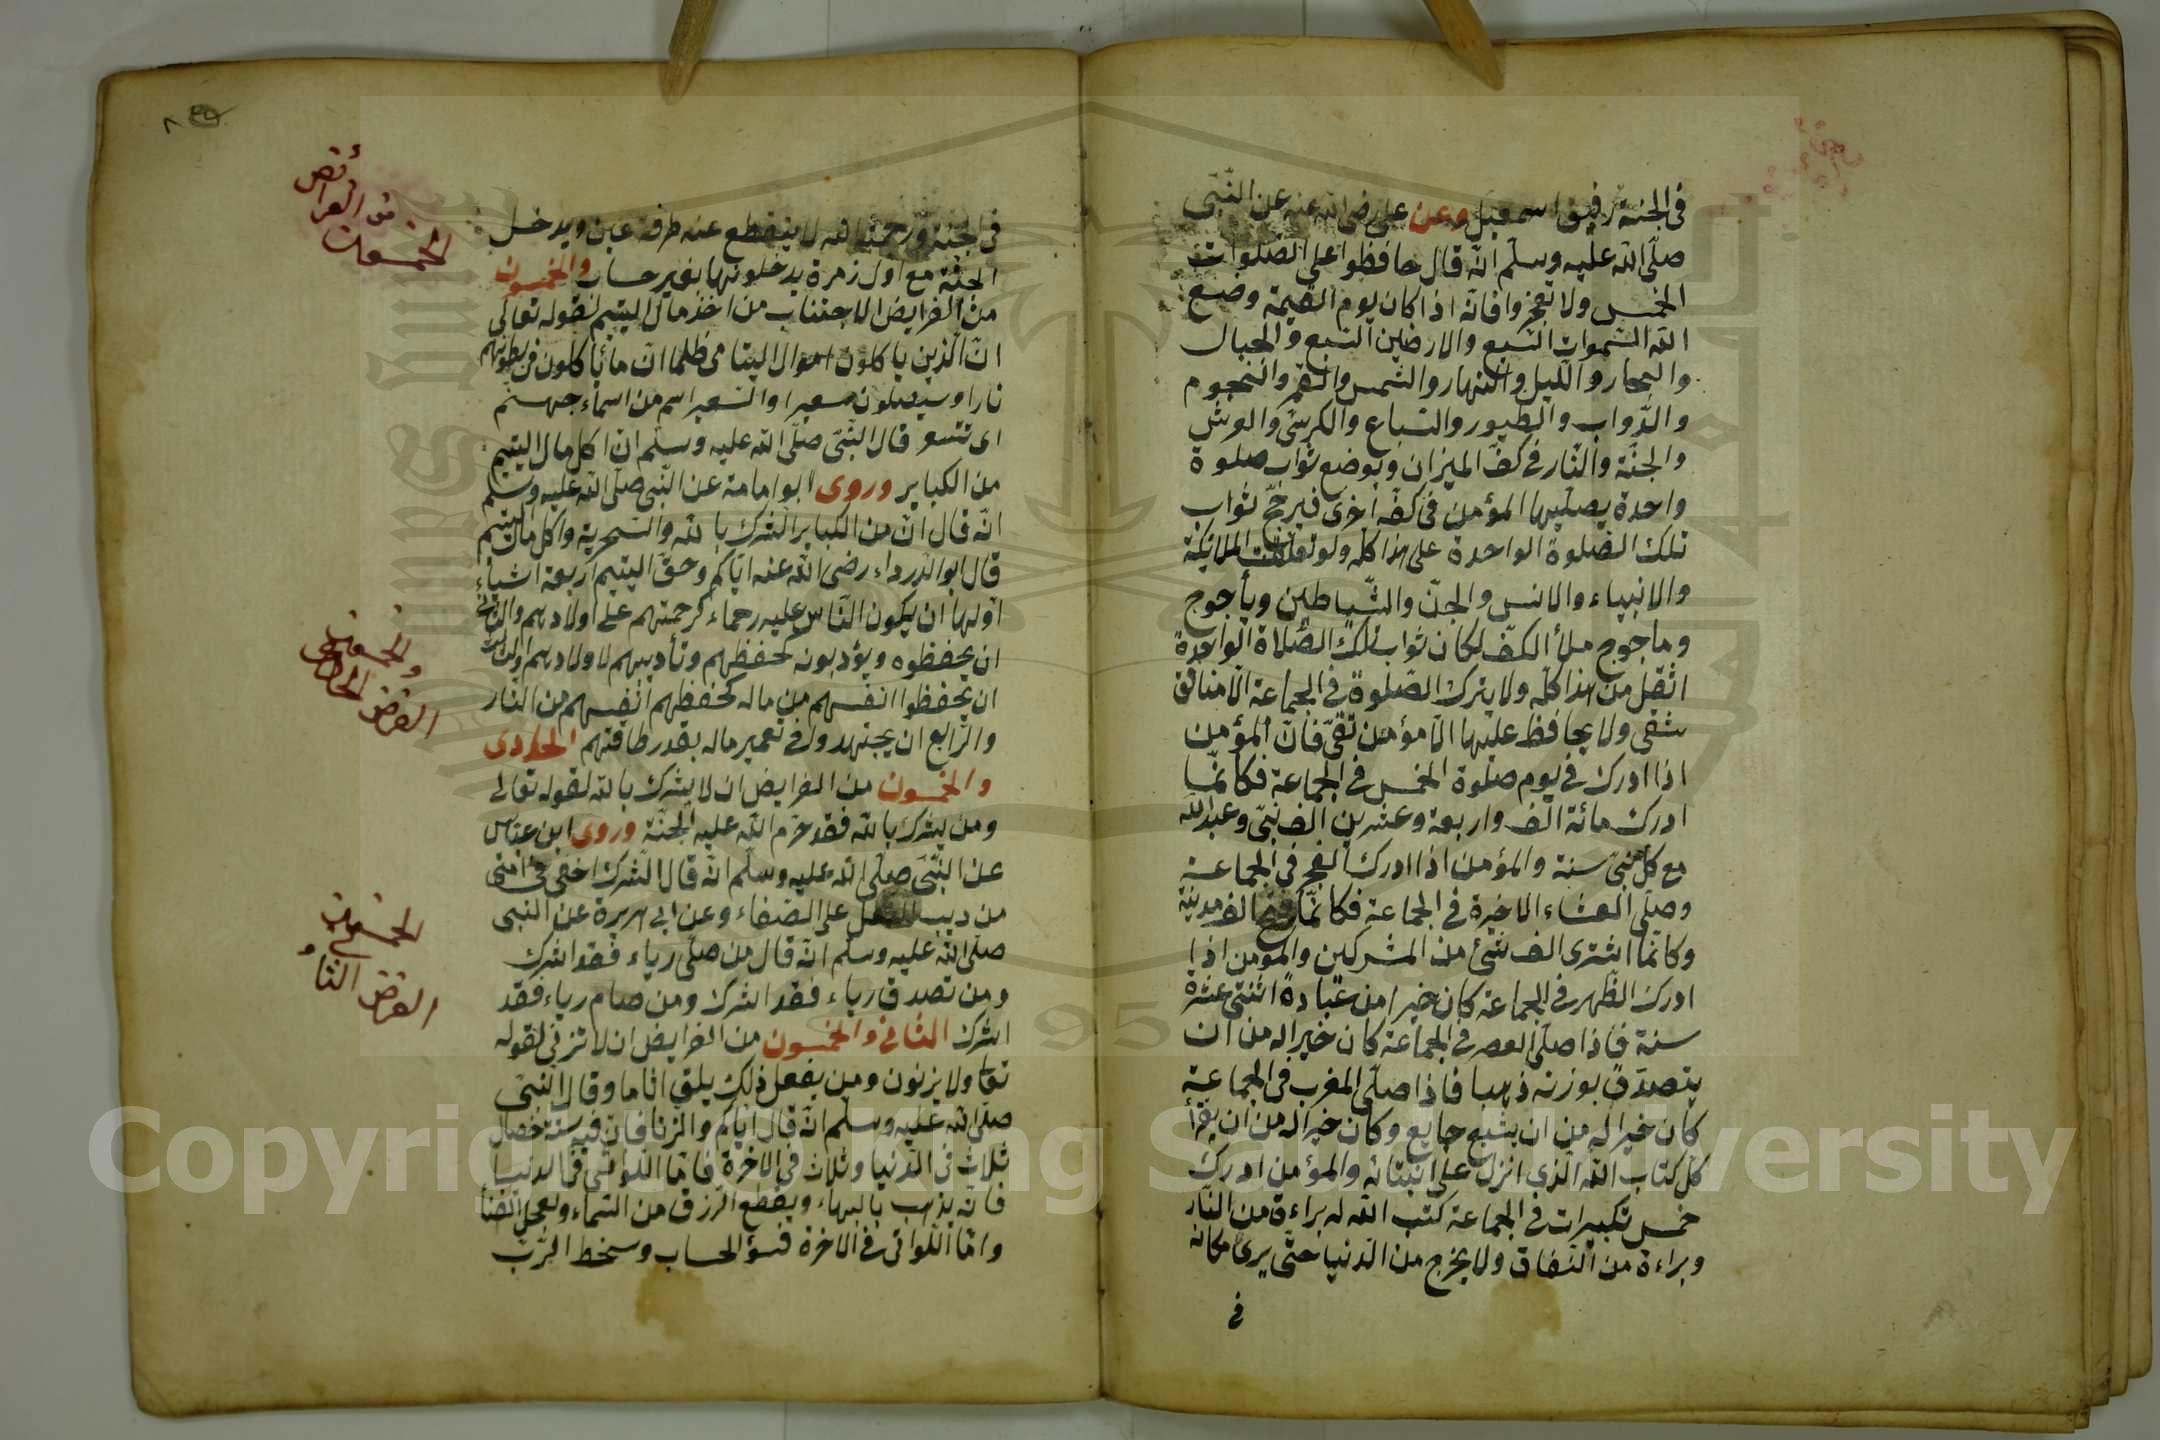 في الجنة رفيق اسمعيل وعن علي رضى الله عنه عن النبي
صلى الله عليه وسلم انه قال حافظوا على الصلوات
الخمس ولا تعجزوا فانه اذا كان يوم القيمة وضع
الله السموات السبع والارضين السبع والجبال
والبحار والليل والنهار والشمس والقمر والنجوم
والدواب والطيور والسباع والكرسي والعرش
والجنة والنار في كف الميزان ويوضع ثواب صلوة
واحدة يصليها المؤمن في كفه اخرى فيرجح ثواب
تلك الصلوة الواحدة على هذا كله ولو تعلقت الملائكة
والانبياء والانس والجن والشياطين ويأجوج
ومأجوج ملأ الكف لكان ثواب تلك الصلاة الواحدة
اثقل من هذا كله ولا يترك الصلوة في الجماعة الا منافق
شقي ولا يحافظ عليها الا مؤمن تقي فان المؤمن
اذا ادرك في يوم صلوة الخمس في الجماعة فكانما
ادرك مائة الف واربعة وعشرين الف نبي وعبد الله
مع كل نبي سنة والمؤمن اذا ادرك الفجر في الجماعة
وصلى العشاء الاخيرة في الجماعة فكانما فتح الف مدينة
وكانما اشترى الف شئ من المشركين والمؤمن اذا
ادرك الظهر في الجماعة كان خيرا من عبادة اثنتى عشرة
سنة فاذا صلى العصر في الجماعة كان خير اله من ان
يتصدق بوزنه ذهبا فاذا صلى المغرب في الجماعة
كان خير اله من ان يشبع جايع وكان خير اله من ان يقرأ
كل كتاب الله الذي انزل على انبيائه والمؤمن ادرك
خمس تكبيرات في الجماعة كتب الله له براءة من النار
وبراءة من النفاق ولا يخرج من الدنيا حتى يرى مكانه
في
في الجنة ورحمة الله لا ينقطع عنه طرفة عين ويدخل
الجنة مع اول زمرة يدخلونها بغير حساب والخمسون
من الفرايض الاجتناب من اخذ مال اليتيم لقوله تعالى
ان الذين ياكلون اموال اليتامى ظلما ان ما يأكلون في بطونهم
نارا وسيصلون سعيرا والسعير اسم من اسماء جهنم
اى تتسعر قال النبي صلى الله عليه وسلم ان اكل مال اليتيم
من الكباير وروى ابو امامة عن النبي صلى الله عليه وسلم
انه قال ان من الكباير الشرك بالله والسحرية واكل مال اليتيم
قال ابو الدرداء رضى الله عنه اياكم وحق اليتيم اربعة اشياء
اولها ان يكون الناس عليه رحماء كرحمتهم على اولادهم والثاني
ان يحفظوه ويؤدبونه كحفظهم وتأديبهم لاولادهم والثالث
ان يحفظوا انفسهم من ماله كحفظهم انفسهم من النار
والرابع ان يجتهدوا في تعمير ماله بقدر طاقتهم الحادى
والخمسون من الفرايض ان لا يشرك بالله لقوله تعالى
ومن يشرك بالله فقد حرم الله عليه الجنة وروى ابن عباس
عن النبي صلى الله عليه وسلم انه قال الشرك اخفى في امتى
من دبيب النمل على الصفاء وعن ابي هريرة عن النبي
صلى الله عليه وسلم انه قال من صلى رياء فقد اشرك
ومن تصدق رياء فقد اشرك ومن صام رياء فقد
اشرك الثاني والخمسون من الفرايض ان لا تزني لقوله
تعا ولا يزنون ومن يفعل ذلك يلق اثاما وقال النبي
صلى الله عليه وسلم انه قال اياكم والزنا فان فيه ستة خصال
ثلاث في الدنيا وثلاث في الاخرة فاما اللواتي في الدنيا
فانه يذهب بالبهاء ويقطع الرزق من السماء ويعجل الفناء
واما اللواتي في الاخرة فسوء الحساب وسخط الرب
الخمسون
من الفرائض
والخمسون
الفرض الحادى
الخمسون
الفرض الثانى
Copyright © King Saud University